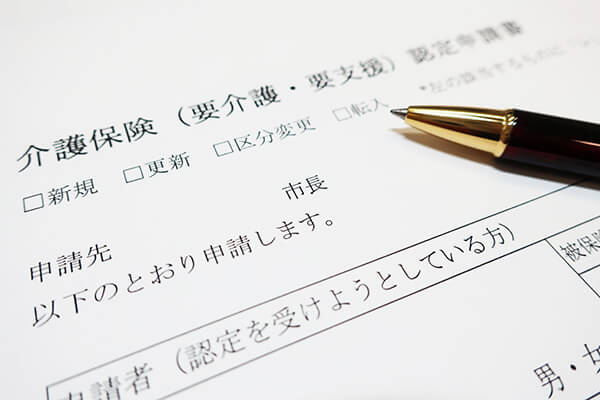 介護保険（要介護・要支援）認定申請書
□新規 □更新 □区分変更 □転入 *左の該当するものに
市長
申請先
以下のとおり申請します。
申請者（認定を受けようとしている方）
被保険
男・女